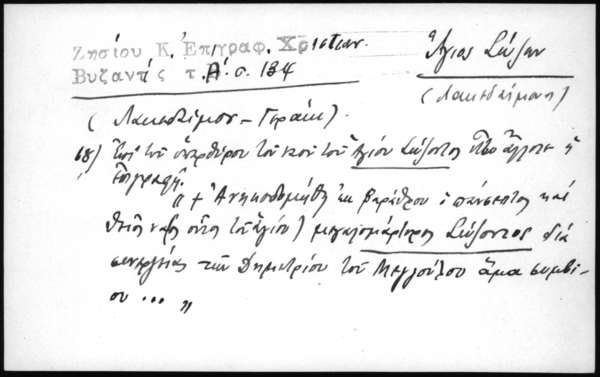 Ζησίου Κ. Ἐπιγραφ. Χριστιαν.
Βυζαντίς τ. Α΄. σ. 134
Ἅγιος Σώζων
(Λακεδαίμονος)
(Λακεδαίμων – Γεράκι).
68) Ἐπὶ τοῦ ὑπερθύρου τοῦ ναοῦ τοῦ Ἁγίου Σώζοντος ἄλλοτε ἡ
ἐπιγραφή.
„ + Ἀνηκοδομήθη ἐκ βαράθρου ὁ πάνσεπτος καὶ
θεῖος ναὸς οὗτος τοῦ ἁγίου) μεγαλομάρτυρος Σώζοντος διὰ
συνεργείας τοῦ Δημητρίου τοῦ ἅμα συμβί-
ου ... „